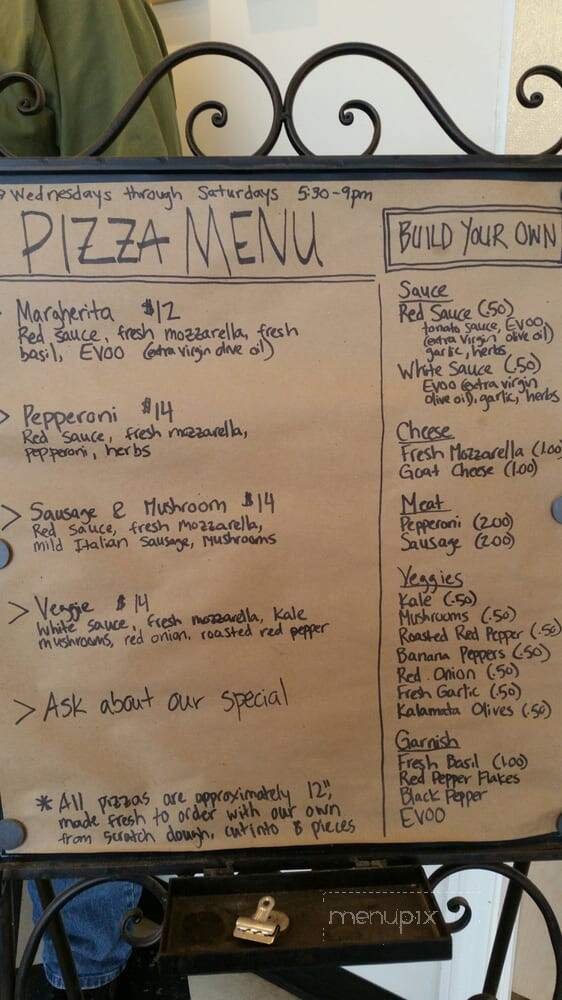 Wednesdays through Saturdays 5:30-9pm
PIZZA MENU
Margherita $12
Red sauce, fresh mozzarella, fresh
basil, EVOO (extra virgin olive oil)
> Pepperoni $14
Red sauce, fresh mozzarella,
pepperoni, herbs
> Sausage & Mushroom $14
Red sauce, fresh mozzarella,
mild Italian sausage, mushrooms
> Veggie $14
White sauce, fresh mozzarella, Kale
mushrooms, red onion, roasted red pepper
> Ask about our special
* All pizzas are approximately 12",
made fresh to order with our own
from scratch dough, cut into 8 pieces
BUILD YOUR OWN
Sauce
Red Sauce (.50)
tomato sauce, EVOO,
(extra virgin olive oil)
garlic, herbs
White Sauce (.50)
EVOO (extra virgin
olive oil), garlic, herbs
Cheese
Fresh Mozzarella (1.00)
Goat Cheese (1.00)
Meat
Pepperoni (2.00)
Sausage (2.00)
Veggies
Kale (.50)
Mushrooms (.50)
Roasted Red Pepper (.50)
Banana Peppers (.50)
Red Onion (.50)
Fresh Garlic (.50)
Kalamata Olives (.50)
Garnish
Fresh Basil (1.00)
Red Pepper Flakes
Black Pepper
EVOO
menupix